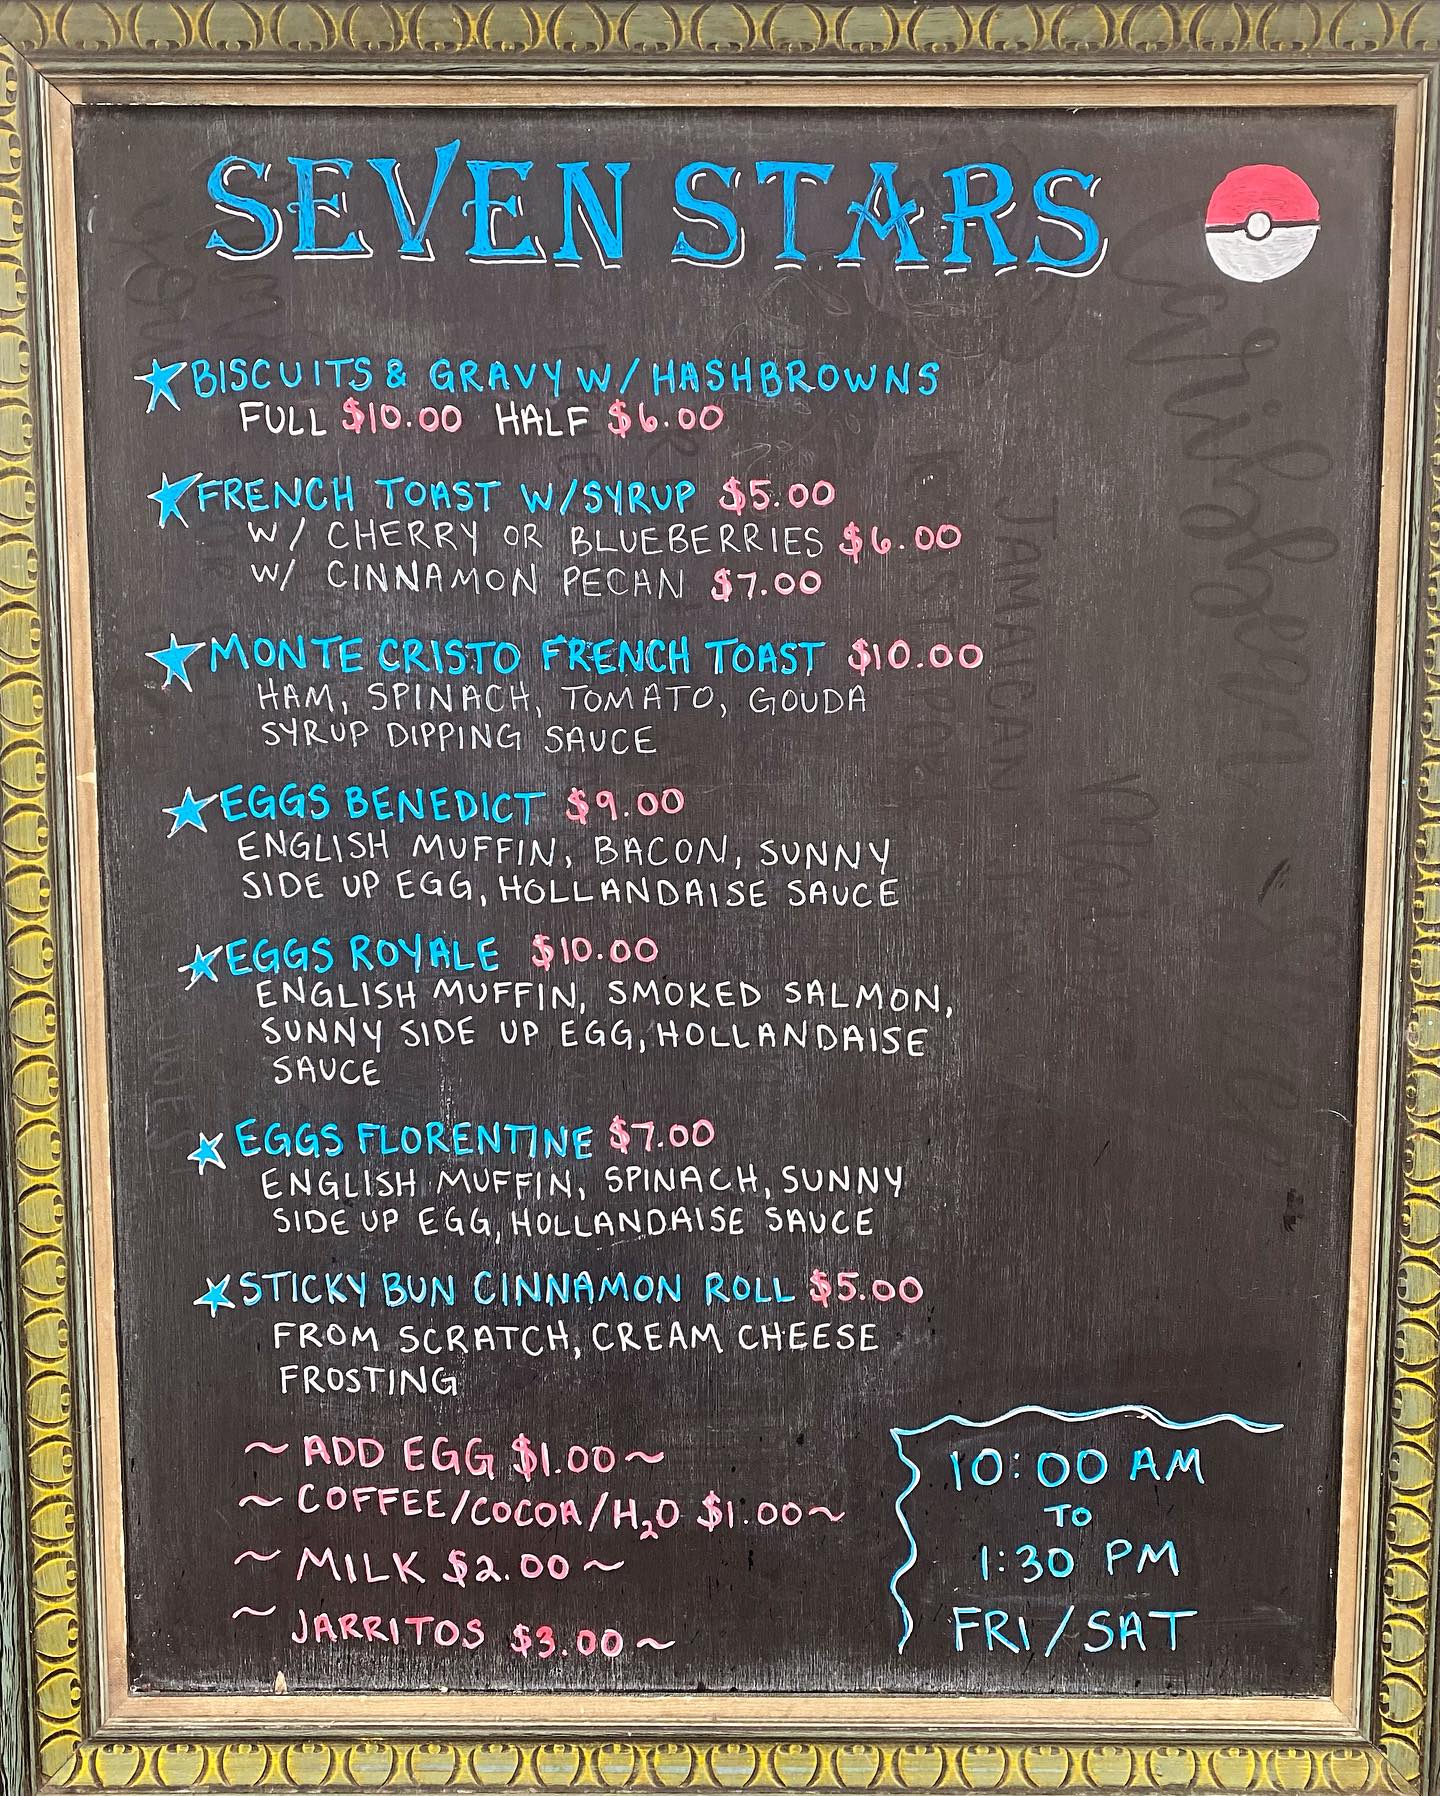 SEVEN STARS
BISCUITS & GRAVY W/HASHBROWNS
FULL $10.00 HALF $6.00
FRENCH TOAST W/SYRUP $5.00
W/ CHERRY OR BLUEBERRIES $6.00
W/ CINNAMON PECAN $7.00
MONTE CRISTO FRENCH TOAST $10.00
HAM, SPINACH, TOMATO, GOUDA
SYRUP DIPPING SAUCE
EGGS BENEDICT $9.00
ENGLISH MUFFIN, BACON, SUNNY
SIDE UP EGG, HOLLANDAISE SAUCE
EGGS ROYALE $10.00
ENGLISH MUFFIN, SMOKED SALMON,
SUNNY SIDE UP EGG, HOLLANDAISE
SAUCE
EGGS FLORENTINE $7.00
ENGLISH MUFFIN, SPINACH, SUNNY
SIDE UP EGG, HOLLANDAISE SAUCE
STICKY BUN CINNAMON ROLL $5.00
FROM SCRATCH, CREAM CHEESE
FROSTING
~ ADD EGG $1.00 ~
~ COFFEE/COCOA/H₂O $1.00 ~
~ MILK $2.00 ~
~ JARRITOS $3.00 ~
10:00 AM
TO
1:30 PM
FRI/SAT
Caribbean
JAMAICAN